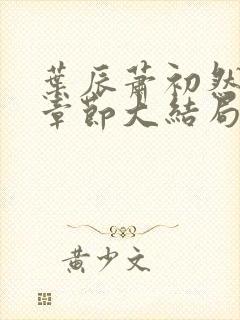 葉辰蕭初然
章節大結局
黄少文